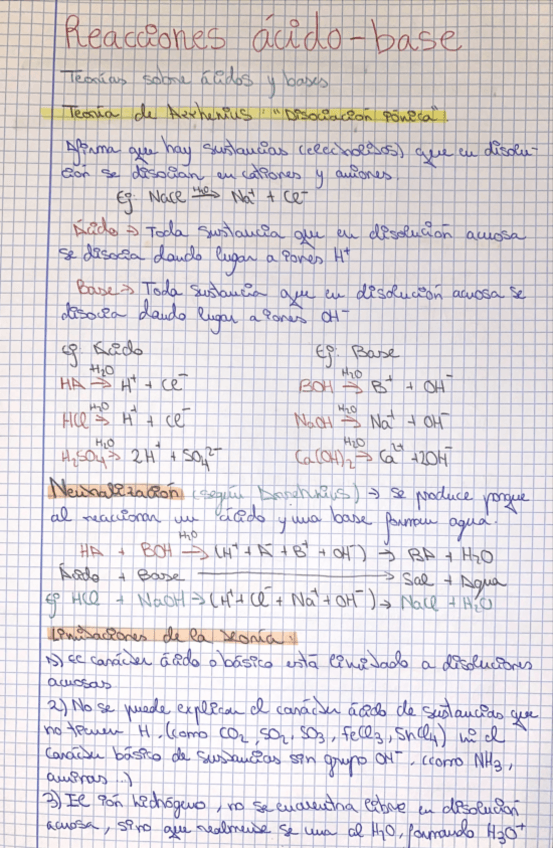 Reacciones ácido-base
Teorías sobre ácidos y bases
Teoría de Arrhenius "Disociación iónica".
Afirma que hay sustancias (electrolitos) que en disolu-
ción se disocian en cationes y aniones.
Ej: NaCl →H₂O Na⁺ + Cl⁻
Ácido → Toda sustancia que en disolución acuosa
se disocia dando lugar a iones H⁺
Base → Toda sustancia que en disolución acuosa se
disocia dando lugar a iones OH⁻
ej Ácido Ej: Base
HA →H₂O H⁺ + Cl⁻ BOH →H₂O B⁺ + OH⁻
HCl →H₂O H⁺ + Cl⁻ NaOH →H₂O Na⁺ + OH⁻
H₂SO₄ →H₂O 2H⁺ + SO₄²⁻ Ca(OH)₂ →H₂O Ca²⁺ + 2OH⁻
Neutralización (según Arrhenius) → se produce porque
al reaccionar un ácido y una base forman agua.
HA + BOH →H₂O (H⁺ + A⁻ + B⁺ + OH⁻) → BA + H₂O
Ácido + Base → Sal + Agua
ej HCl + NaOH → (H⁺ + Cl⁻ + Na⁺ + OH⁻) → NaCl + H₂O
Limitaciones de la teoría:
1) El carácter ácido o básico está limitado a disoluciones
acuosas
2) No se puede explicar el carácter ácido de sustancias que
no tienen H. (como CO₂, SO₂, SO₃, FeCl₃, SnCl₄) ni el
carácter básico de sustancias sin grupo OH⁻. (como NH₃,
aminas..)
3) El ión hidrógeno, no se encuentra libre en disolución
acuosa, sino que realmente se une al H₂O, formando H₃O⁺